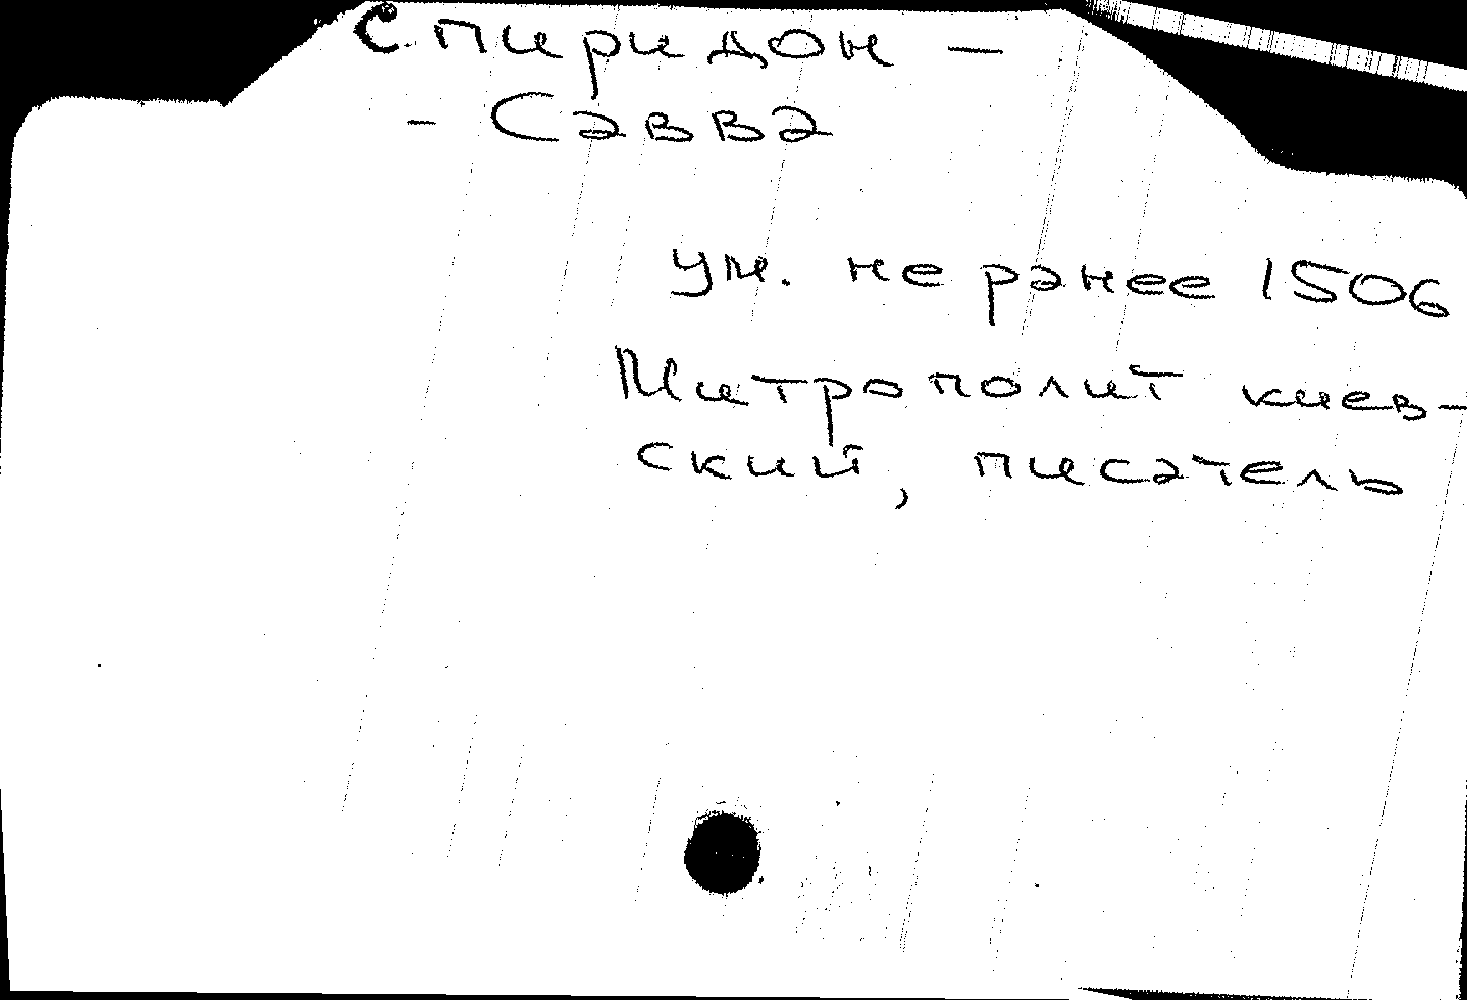 Спиридон —
- Савва
ум. не ранее 1506
Митрополит киев-
ский, писатель